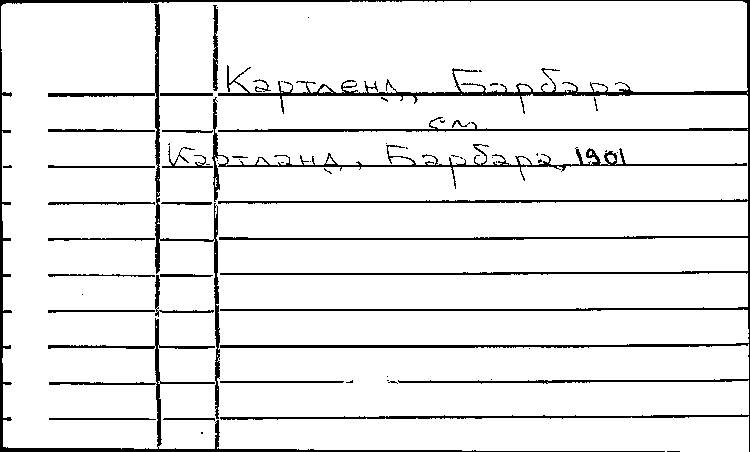 Картленд, Барбара
см
Картланд, Барбара, 1901